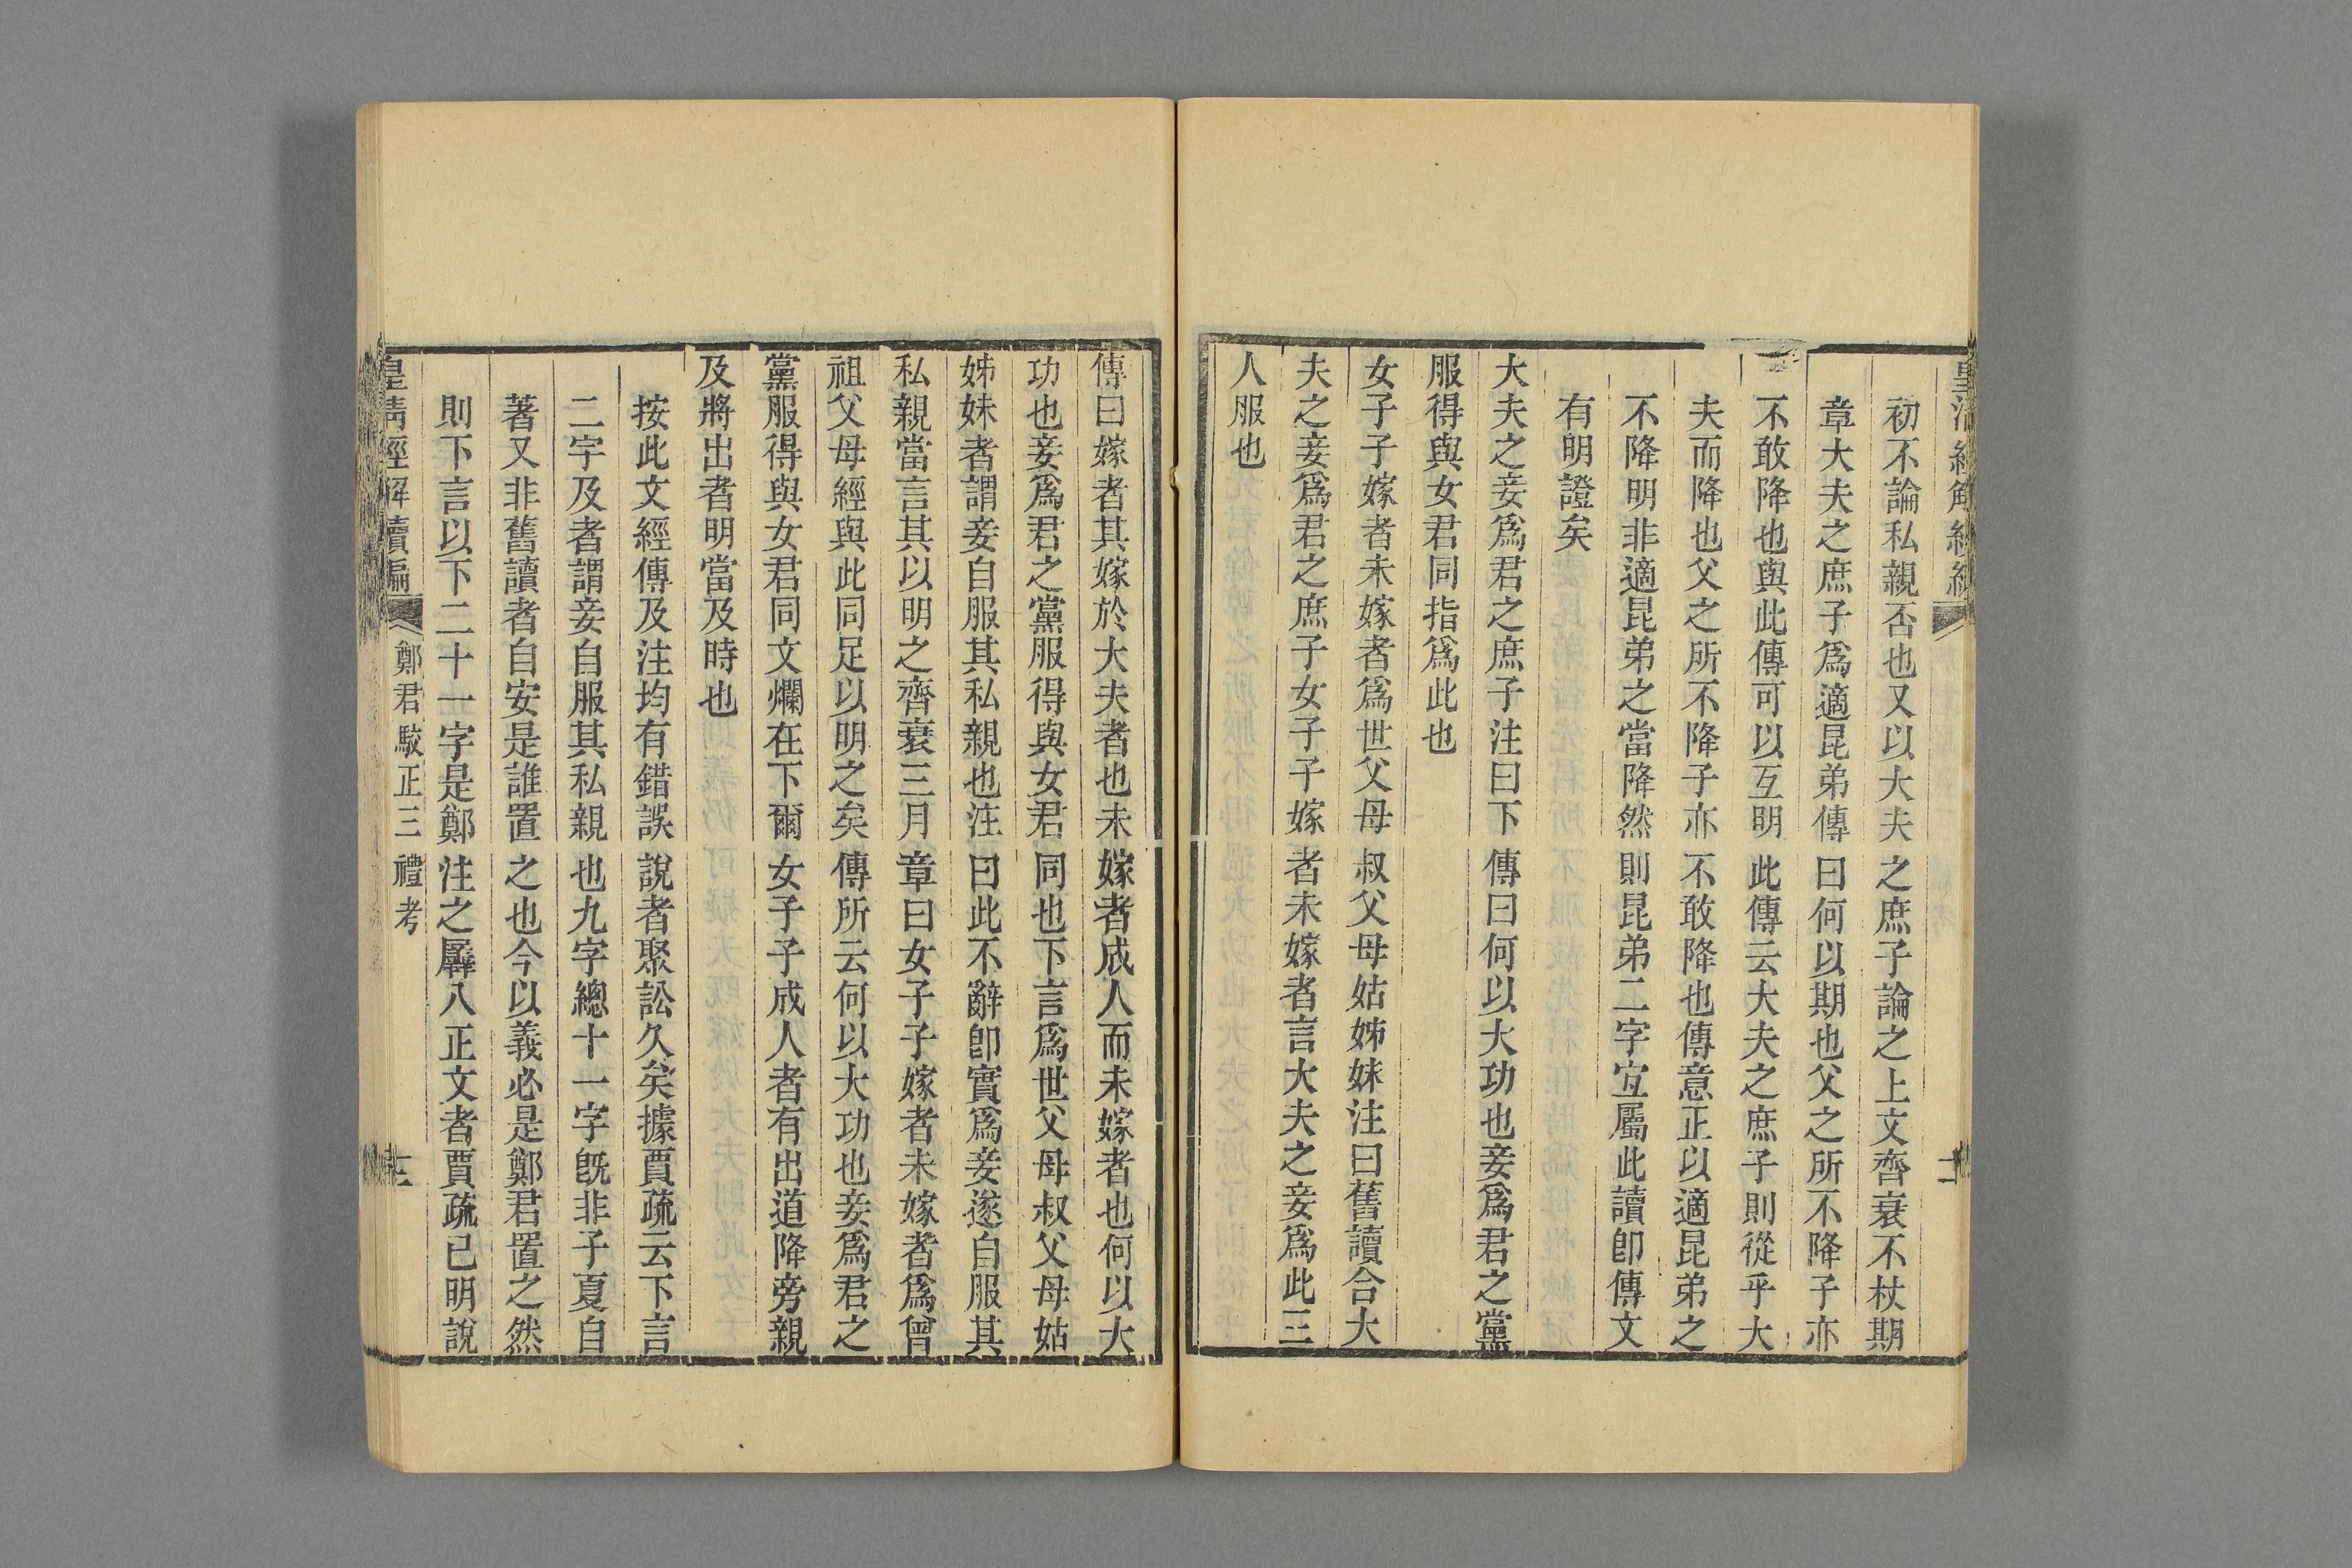 初不論私親否也又以大夫之庶子論之上文齊衰不杖期
章大夫之庶子爲適昆弟傳曰何以期也父之所不降子亦
不敢降也與此傳可以互明此傳云大夫之庶子則從乎大
夫而降也父之所不降子亦不敢降也傳意正以適昆弟之
不降明非適昆弟之當降然則昆弟二字宜屬此讀卽傳文
有明證矣
大夫之妾爲君之庶子注曰下傳曰何以大功也妾爲君之黨
服得與女君同指爲此也
女子子嫁者未嫁者爲世父母叔父母姑姊妹注曰舊讀合大
夫之妾爲君之庶子女子子嫁者未嫁者言大夫之妾爲此三
人服也
傳曰嫁者其嫁於大夫者也未嫁者成人而未嫁者也何以大
功也妾爲君之黨服得與女君同也下言爲世父母叔父母姑
姊妹者謂妾自服其私親也注曰此不辭卽實爲妾遂自服其
私親當言其以明之齊衰三月章曰女子子嫁者未嫁者爲曾
祖父母經與此同足以明之矣傳所云何以大功也妾爲君之
黨服得與女君同文爛在下爾女子子成人者有出道降旁親
及將出者明當及時也
按此文經傳及注均有錯誤說者聚訟久矣據賈疏云下言
二字及者謂妾自服其私親也九字總十一字旣非子夏自
著又非舊讀者自安是誰置之也今以義必是鄭君置之然
則下言以下二十一字是鄭注之羼入正文者賈疏已明說
皇淸經解續編
鄭君駮正三禮考